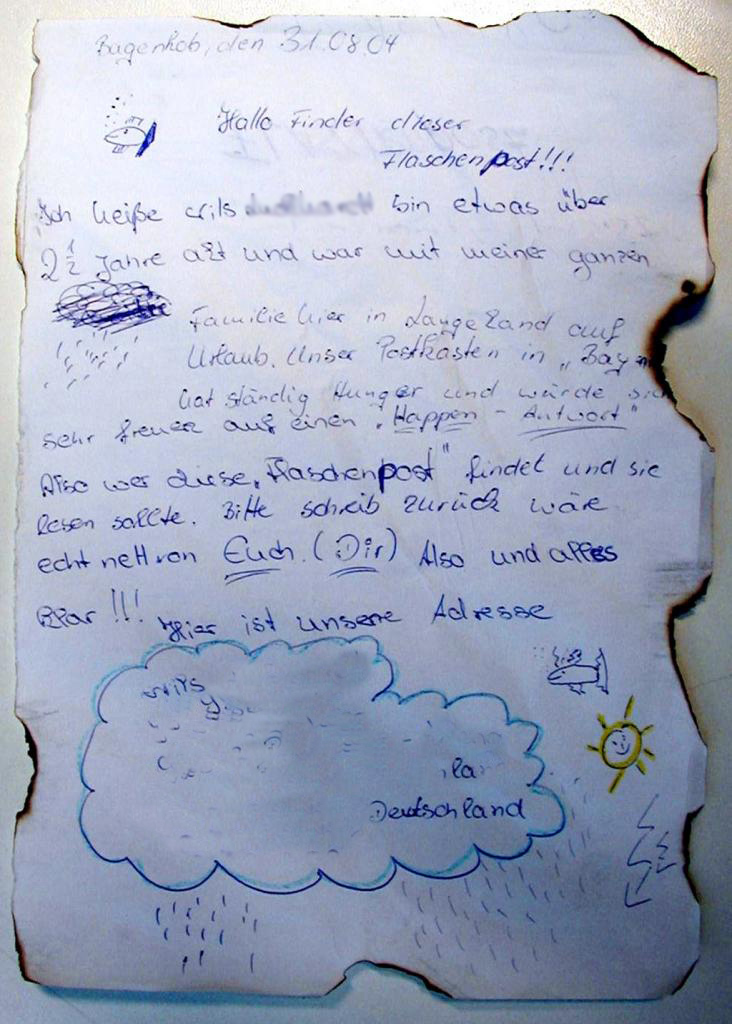 Bagenkob, den 31.08.04
Hallo Finder dieser
Flaschenpost!!!
Ich heiße crils bin etwas über
2 1/2 Jahre alt und war mit meiner ganzen
Familie hier in Langeland auf
Urlaub. Unser Postkasten in „Bay
hat ständig Hunger und würde sich
sehr freuen auf einen „Happen - Antwort"
Also wer diese „Flaschenpost" findet und sie
lesen sollte. Bitte schreib zurück wäre
echt nett von Euch. (Dir) Also und alles
klar !!! Hier ist unsere Adresse
crils
la
Deutschland